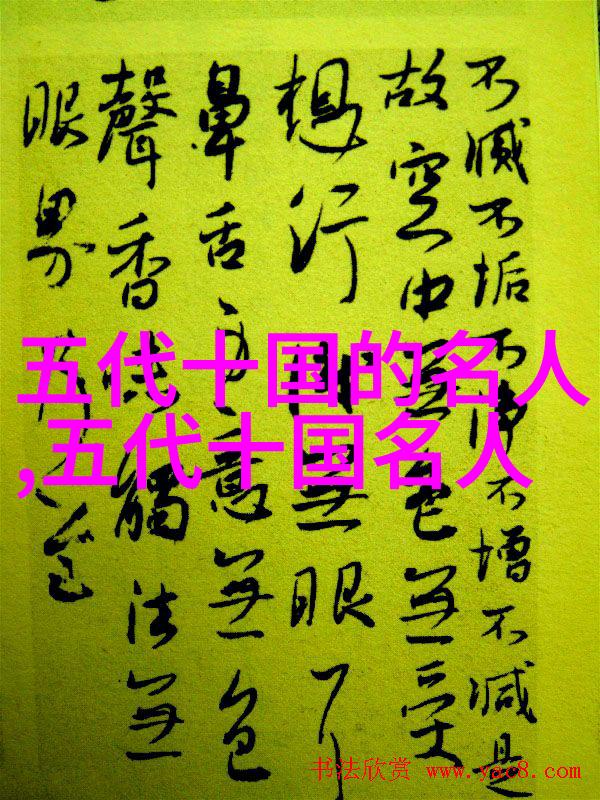 不滅不垢不淨不增不減是
故空中無色無受
想行識無眼耳
鼻舌身意無色
聲香味觸法無
眼界
五代十国的名人
,五代十国名人
书法欣赏 www.yac8.com